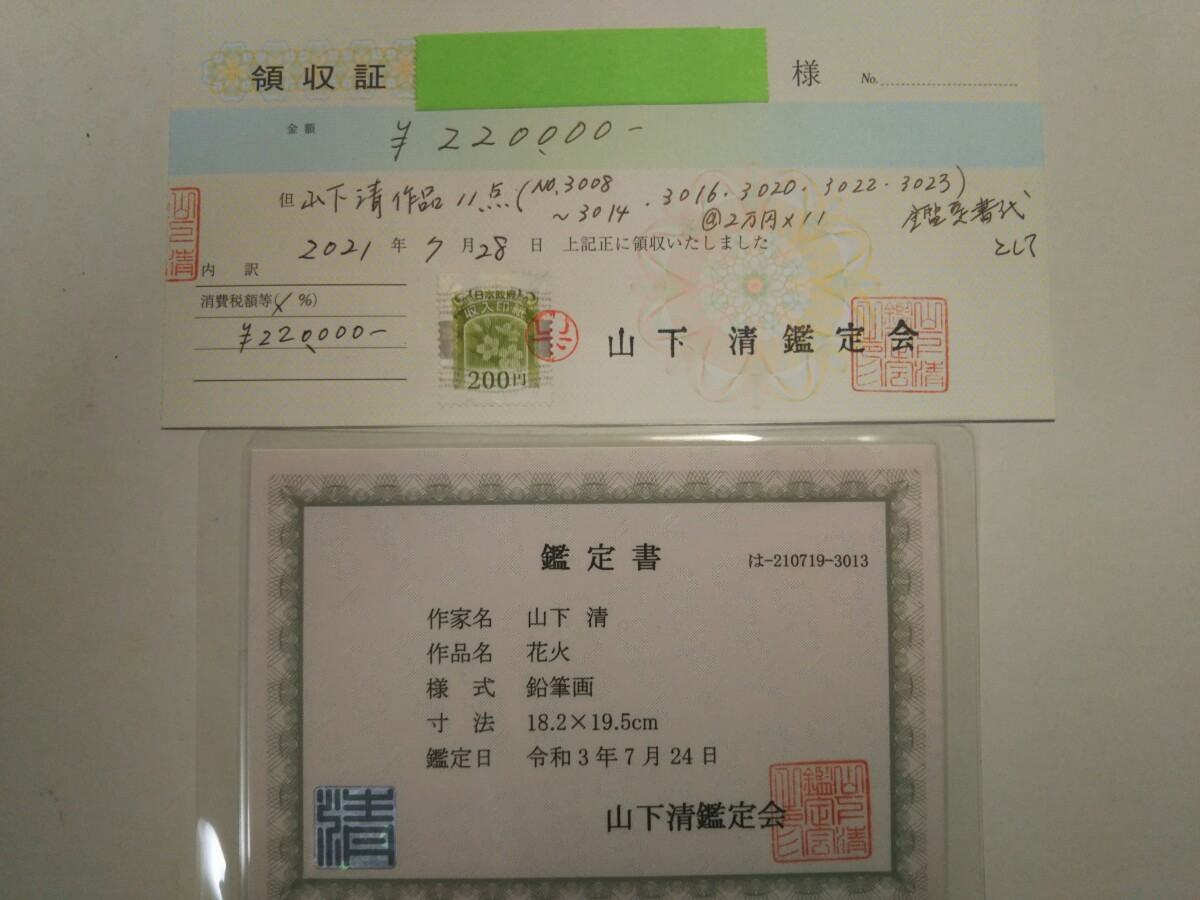 領収証 様 No.
金額 ¥220,000-
但 山下清作品11点(No.3008~3014・3016・3020・3022・3023)
@2万円×11 鑑定書代として
2021年7月28日 上記正に領収いたしました
内訳
消費税額等( %)
¥220,000-
日本政府
収入印紙
200円
山下清鑑定会
鑑定書 は-210719-3013
作家名 山下 清
作品名 花火
様式 鉛筆画
寸法 18.2×19.5cm
鑑定日 令和3年7月24日
清
山下清鑑定会